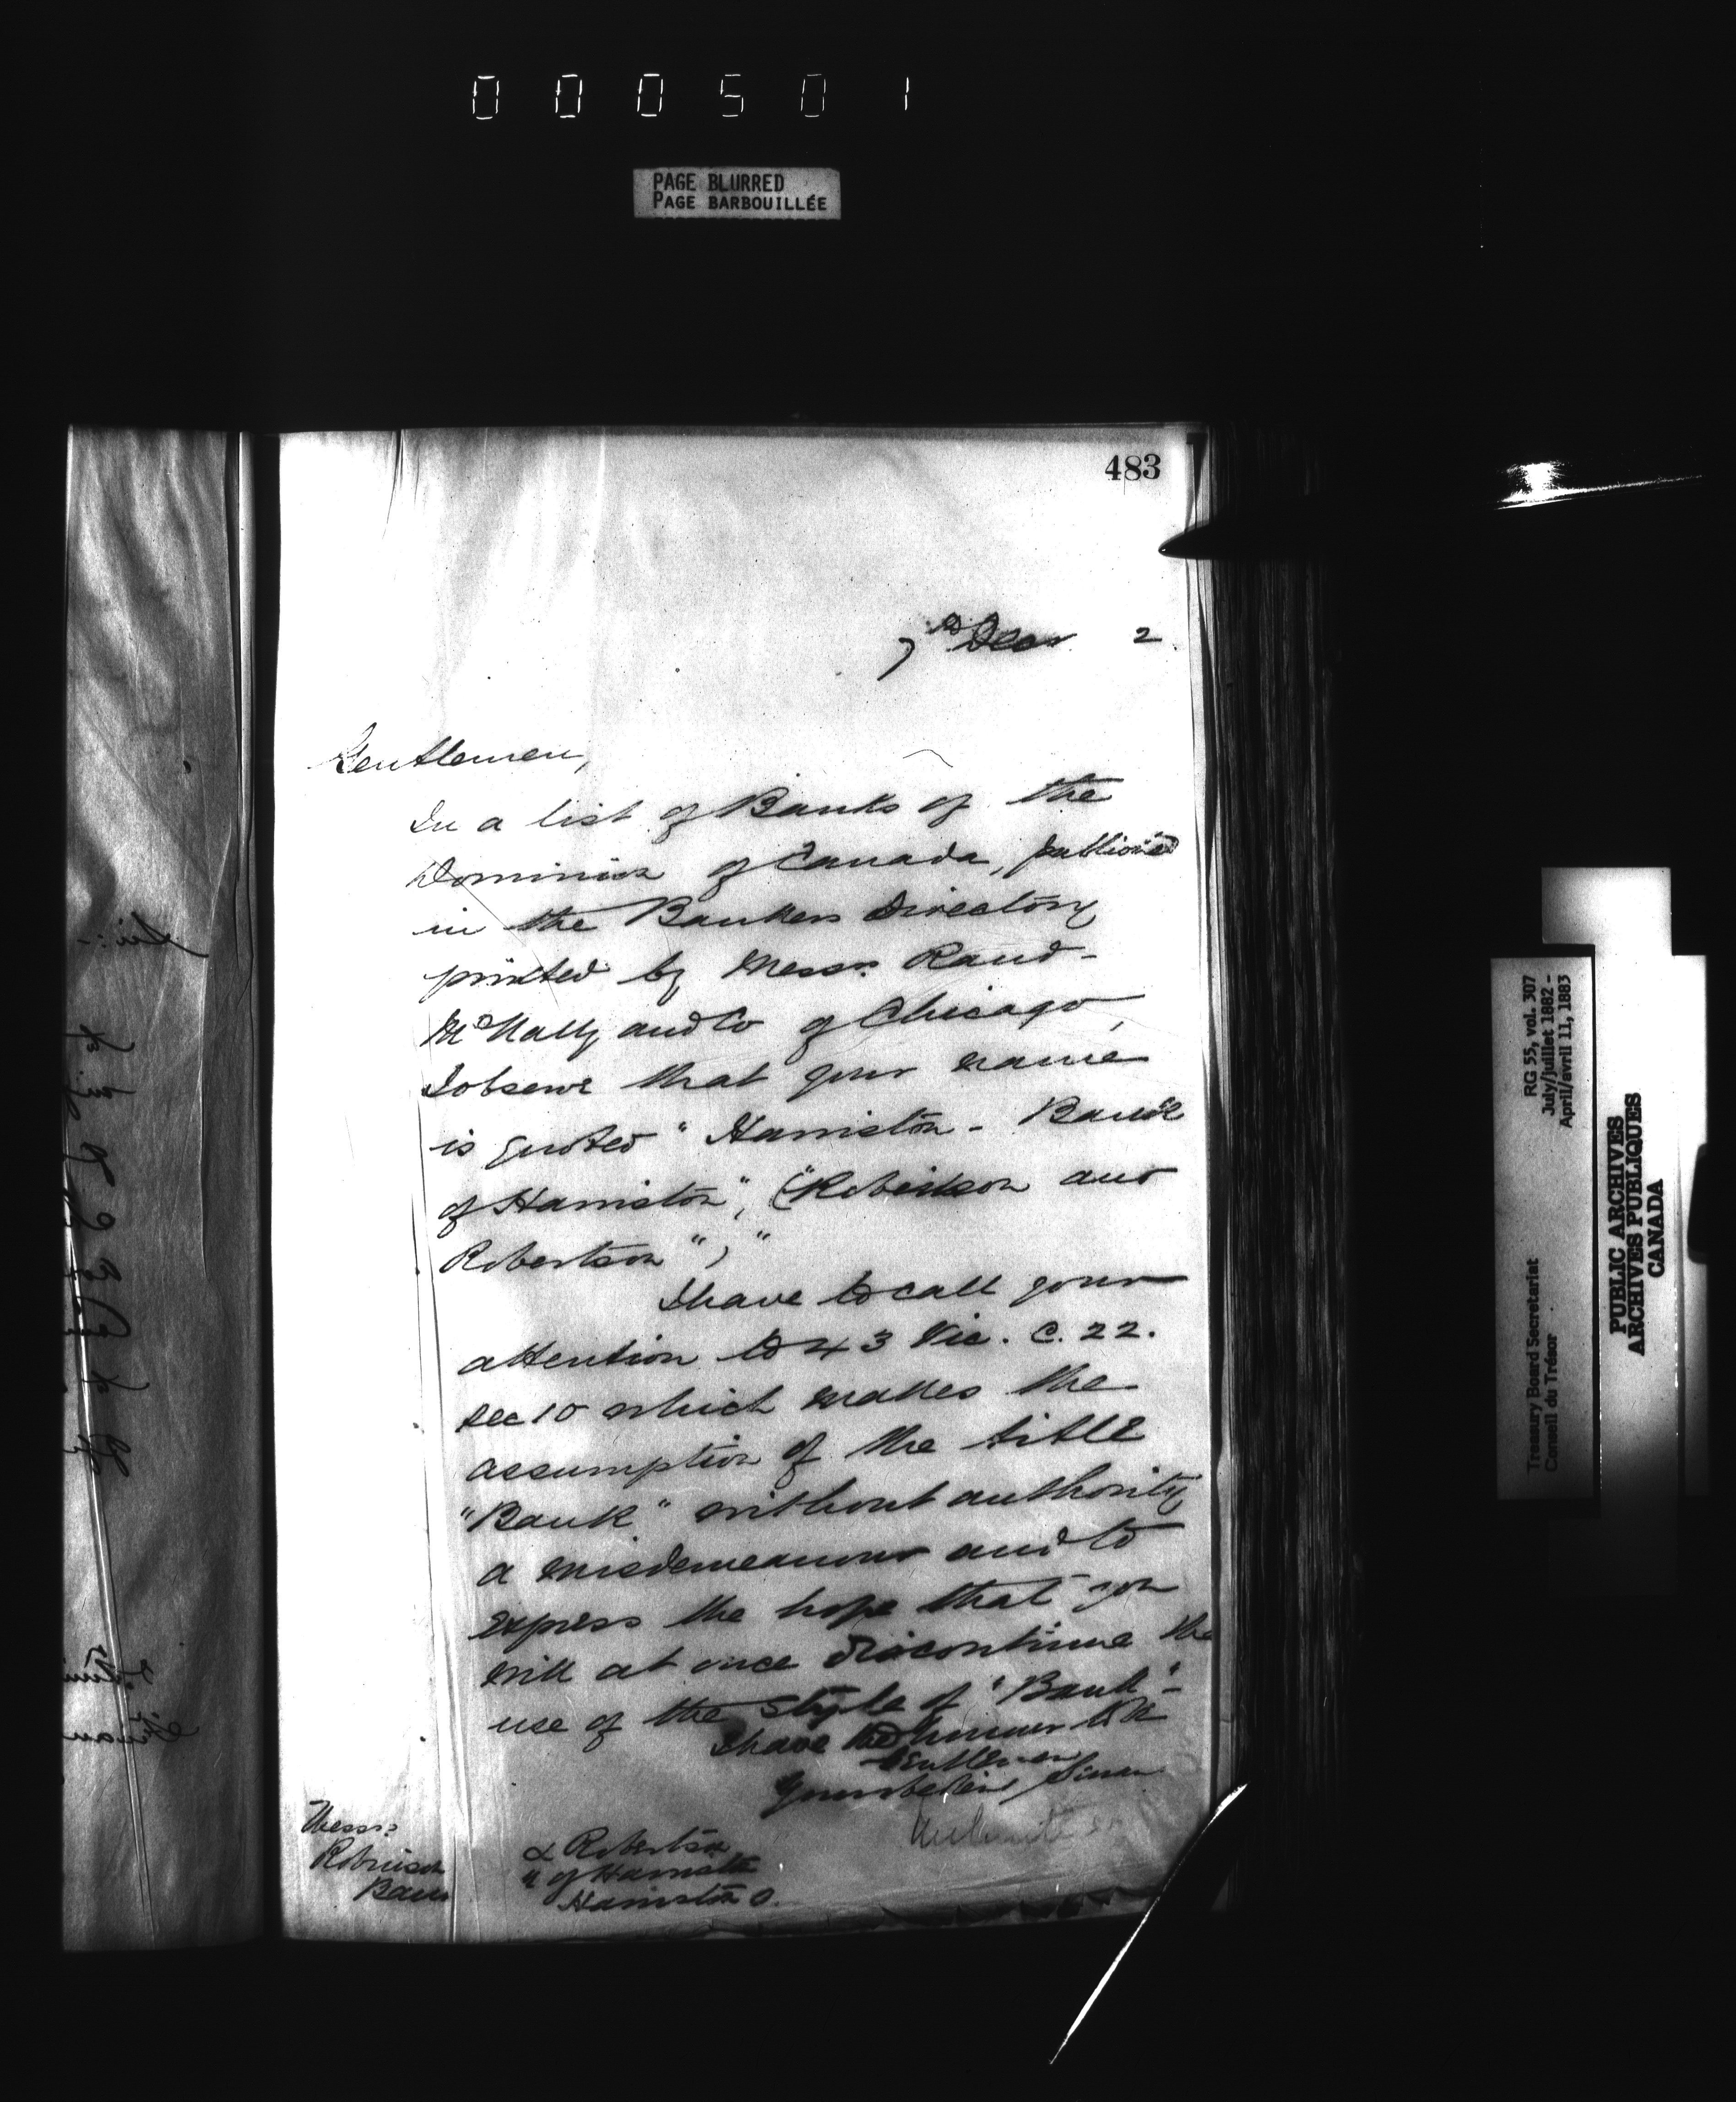 000501
PAGE BLURRED
PAGE BARBOUILLÉE
483
7th Decr 2
Gentlemen,
In a list of Banks of the
Dominion of Canada, published
in the Bankers Directory
printed by Messrs. Rand-
McNally and Co of Chicago,
I observe that your name
is quoted "Harriston - Bank
of Harriston", ("Robinson and
Robertson")"
I have to call your
attention to 43 Vic. C. 22.
sec 10 which makes the
assumption of the title
"Bank" without authority
a misdemeanour and to
express the hope that you
will at once discontinue the
use of the style of "Bank"-
I have the honour to be
Gentlemen
Your obedient Servan
Messrs
Robinson & Robertson
Bank of Harriston
Harriston O.
Sir:-
RG 55, vol. 307
July/juillet 1882 -
April/avril 11, 1883
Treasury Board Secretariat
Conseil du Trésor
PUBLIC ARCHIVES
ARCHIVES PUBLIQUES
CANADA